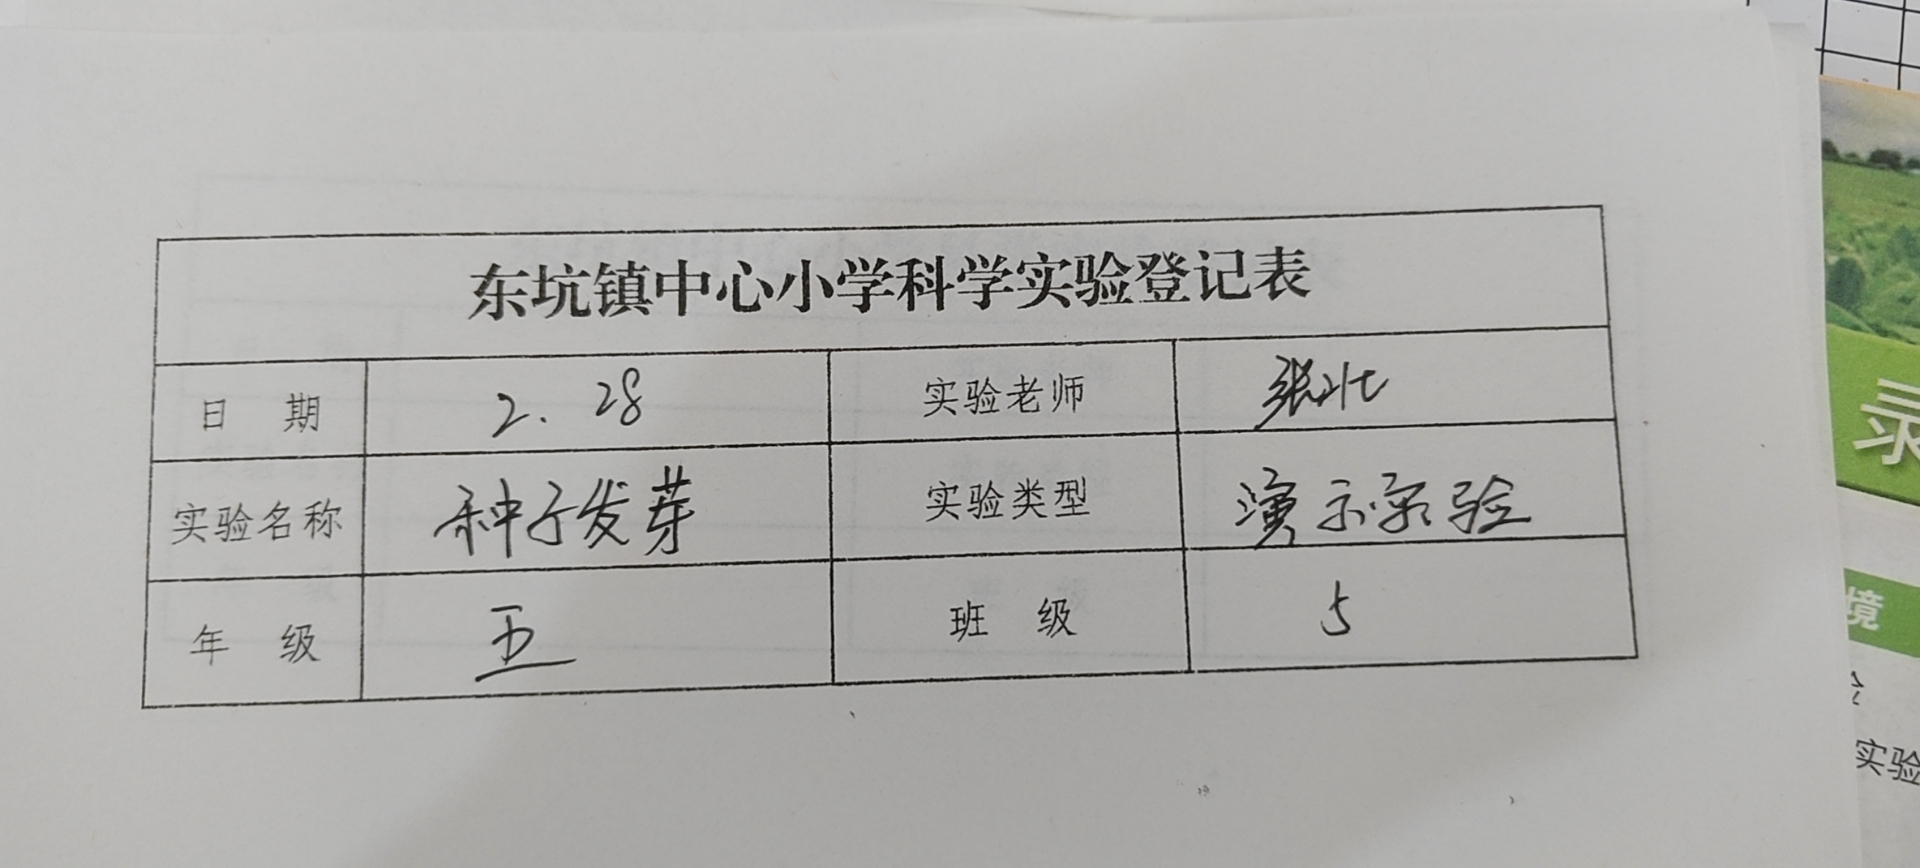 东坑镇中心小学科学实验登记表
日 期 2.28 实验老师 张北
实验名称 种子发芽 实验类型 演示实验
年 级 五 班 级 5
录
境
实验